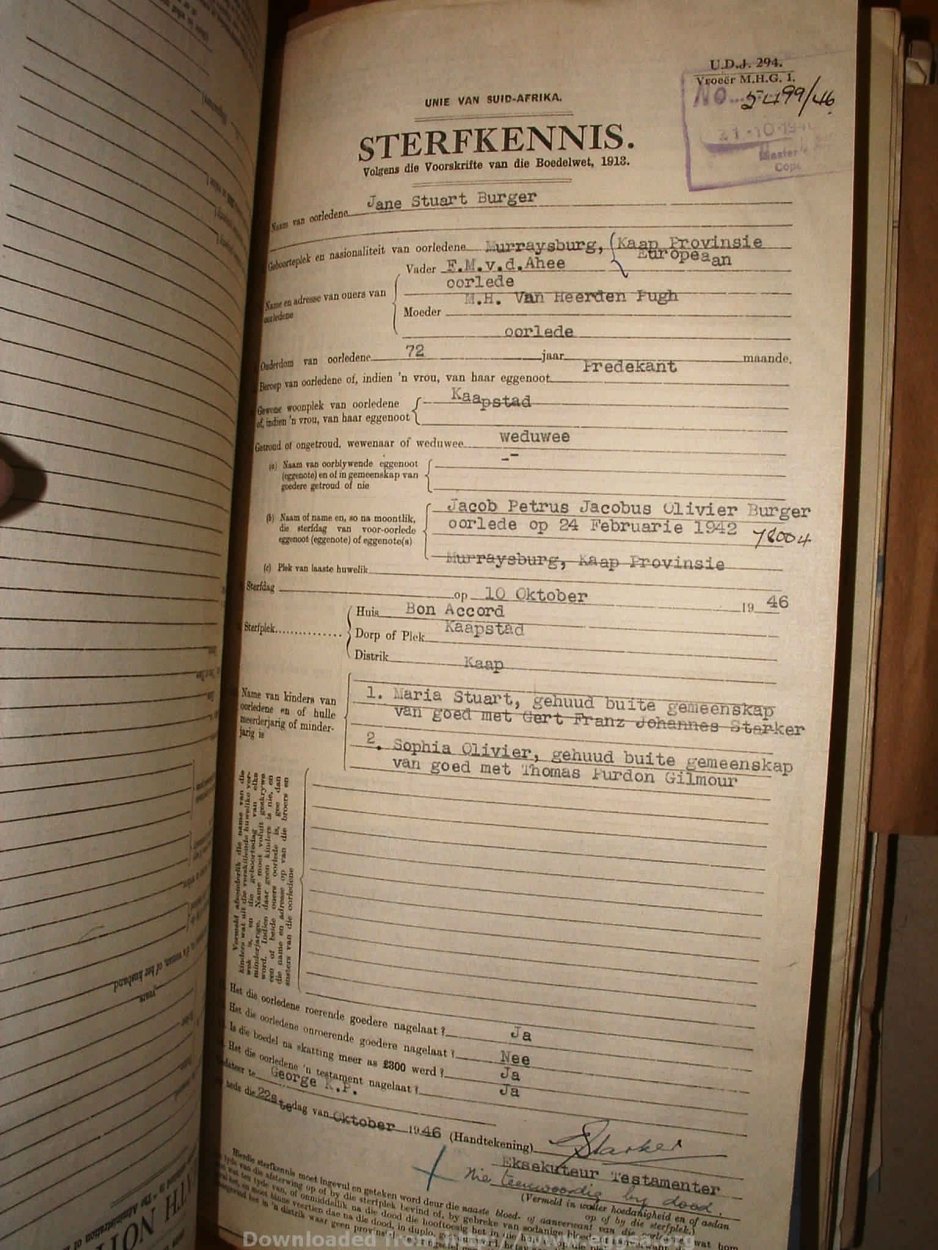 U.D.J. 294.
Vroeër M.H.G. 1.
NO. 5499/46
21-10-194
Master
Cape
UNIE VAN SUID-AFRIKA.
STERFKENNIS.
Volgens die Voorskrifte van die Boedelwet, 1913.
Naam van oorledene Jane Stuart Burger
Geboorteplek en nasionaliteit van oorledene Murraysburg, (Kaap Provinsie
Europeaan
Name en adresse van ouers van oorledene
Vader F.M.v.d.Ahee
oorlede
M.H. Van Heerden Pugh
Moeder
oorlede
Ouderdom van oorledene 72 jaar maande.
Beroep van oorledene of, indien 'n vrou, van haar eggenoot Predekant
Gewone woonplek van oorledene
of, indien 'n vrou, van haar eggenoot
Kaapstad
Getroud of ongetroud, wewenaar of weduwee weduwee
(a) Naam van oorblywende eggenoot
(eggenote) en of in gemeenskap van
goedere getroud of nie
--
(b) Naam of name en, so na moontlik,
die sterfdag van voor-oorlede
eggenoot (eggenote) of eggenote(s)
Jacob Petrus Jacobus Olivier Burger
oorlede op 24 Februarie 1942 78004
(c) Plek van laaste huwelik Murraysburg, Kaap Provinsie
Sterfdag op 10 Oktober 19 46
Sterfplek
Huis Bon Accord
Dorp of Plek Kaapstad
Distrik Kaap
Name van kinders van
oorledene en of hulle
meerderjarig of minder-
jarig is
1. Maria Stuart, gehuud buite gemeenskap
van goed met Gert Franz Johannes Starker
2. Sophia Olivier, gehuud buite gemeenskap
van goed met Thomas Purdon Gilmour
Vermeld afsonderlik die name van die
kinders wat uit die verskillende huwelike ver-
wek is, en die geboortedag van elke
minderjarige. Name moet voluit geskrywe
word. Indien daar geen kinders is nie, en
een of beide ouers oorlede is, gee dan
die name en adresse op van die broers en
susters van die oorledene
Het die oorledene roerende goedere nagelaat? Ja
Het die oorledene onroerende goedere nagelaat? Nee
Is die boedel na skatting meer as £300 werd? Ja
Het die oorledene 'n testament nagelaat? Ja
Gedateer te George K.P.
hede die 22ste dag van Oktober 1946 (Handtekening) Starker
Eksekuteur Testamenter
Nie teenwoordig by dood.
(Vermeld in watter hoedanigheid en of aedan
op of by die sterfplek.)
Hierdie sterfkennis moet ingevul en geteken word deur die naaste bloed- of aanverwant van die oorledene
of her husband
years
Downloaded from http://www.eggsa.org